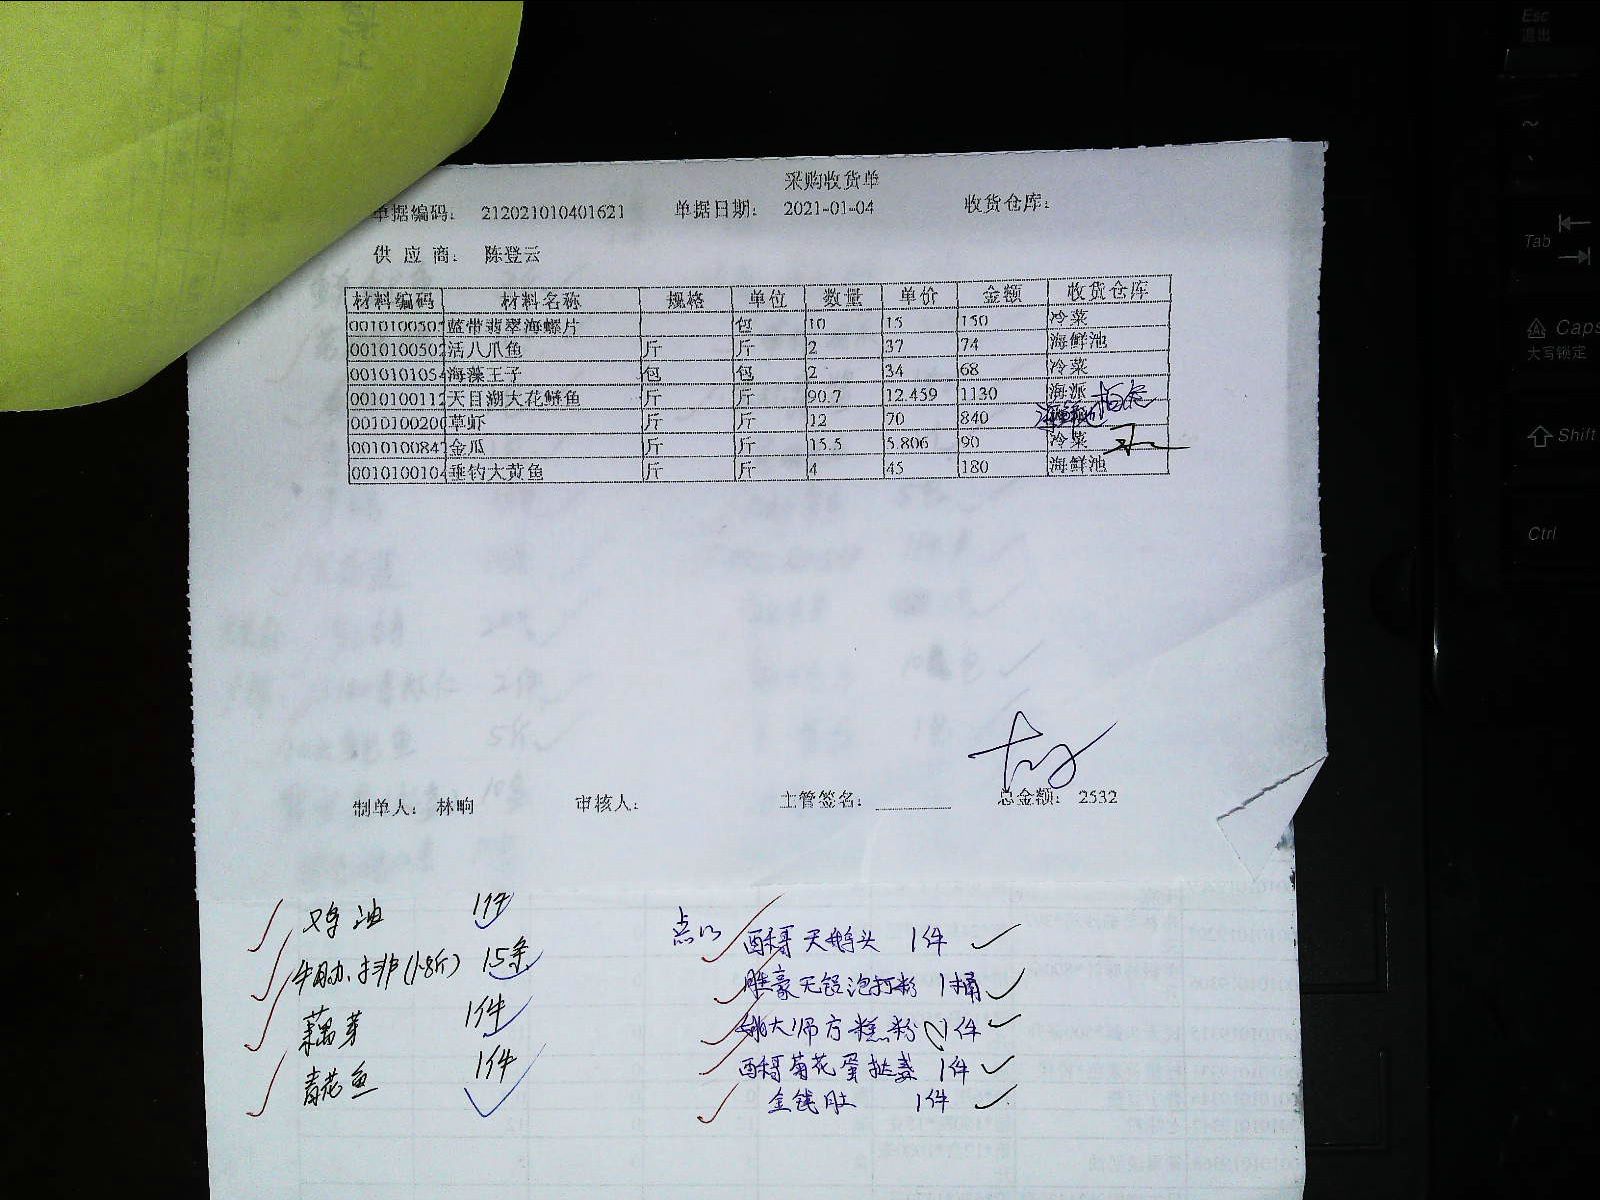 采购收货单
单据编码: 212021010401621 单据日期: 2021-01-04 收货仓库:
供应商: 陈登云
材料编码 材料名称 规格 单位 数量 单价 金额 收货仓库
001010050 蓝带翡翠海螺片 包 10 15 150 冷菜
0010100502 活八爪鱼 斤 斤 2 37 74 海鲜池
0010101054 海藻王子 包 包 2 34 68 冷菜
0010100112 天目湖大花鲢鱼 斤 斤 90.7 12.459 1130 海派
001010020 草虾 斤 斤 12 70 840
001010084 金瓜 斤 斤 15.5 5.806 90 冷菜
0010100104 垂钓大黄鱼 斤 斤 4 45 180 海鲜池
制单人: 林响 审核人: 主管签名: 总金额: 2532
鸡油 1件
牛肋排(1.8斤) 15条
藕芽 1件
青花鱼 1件
点心 酥得天鹅头 1件
胜豪无铝泡打粉 1桶
姚大师方糕粉 1件
酥得菊花蛋挞盏 1件
金钱肚 1件
Esc
退出
Tab
Caps
大写锁定
Shift
Ctrl